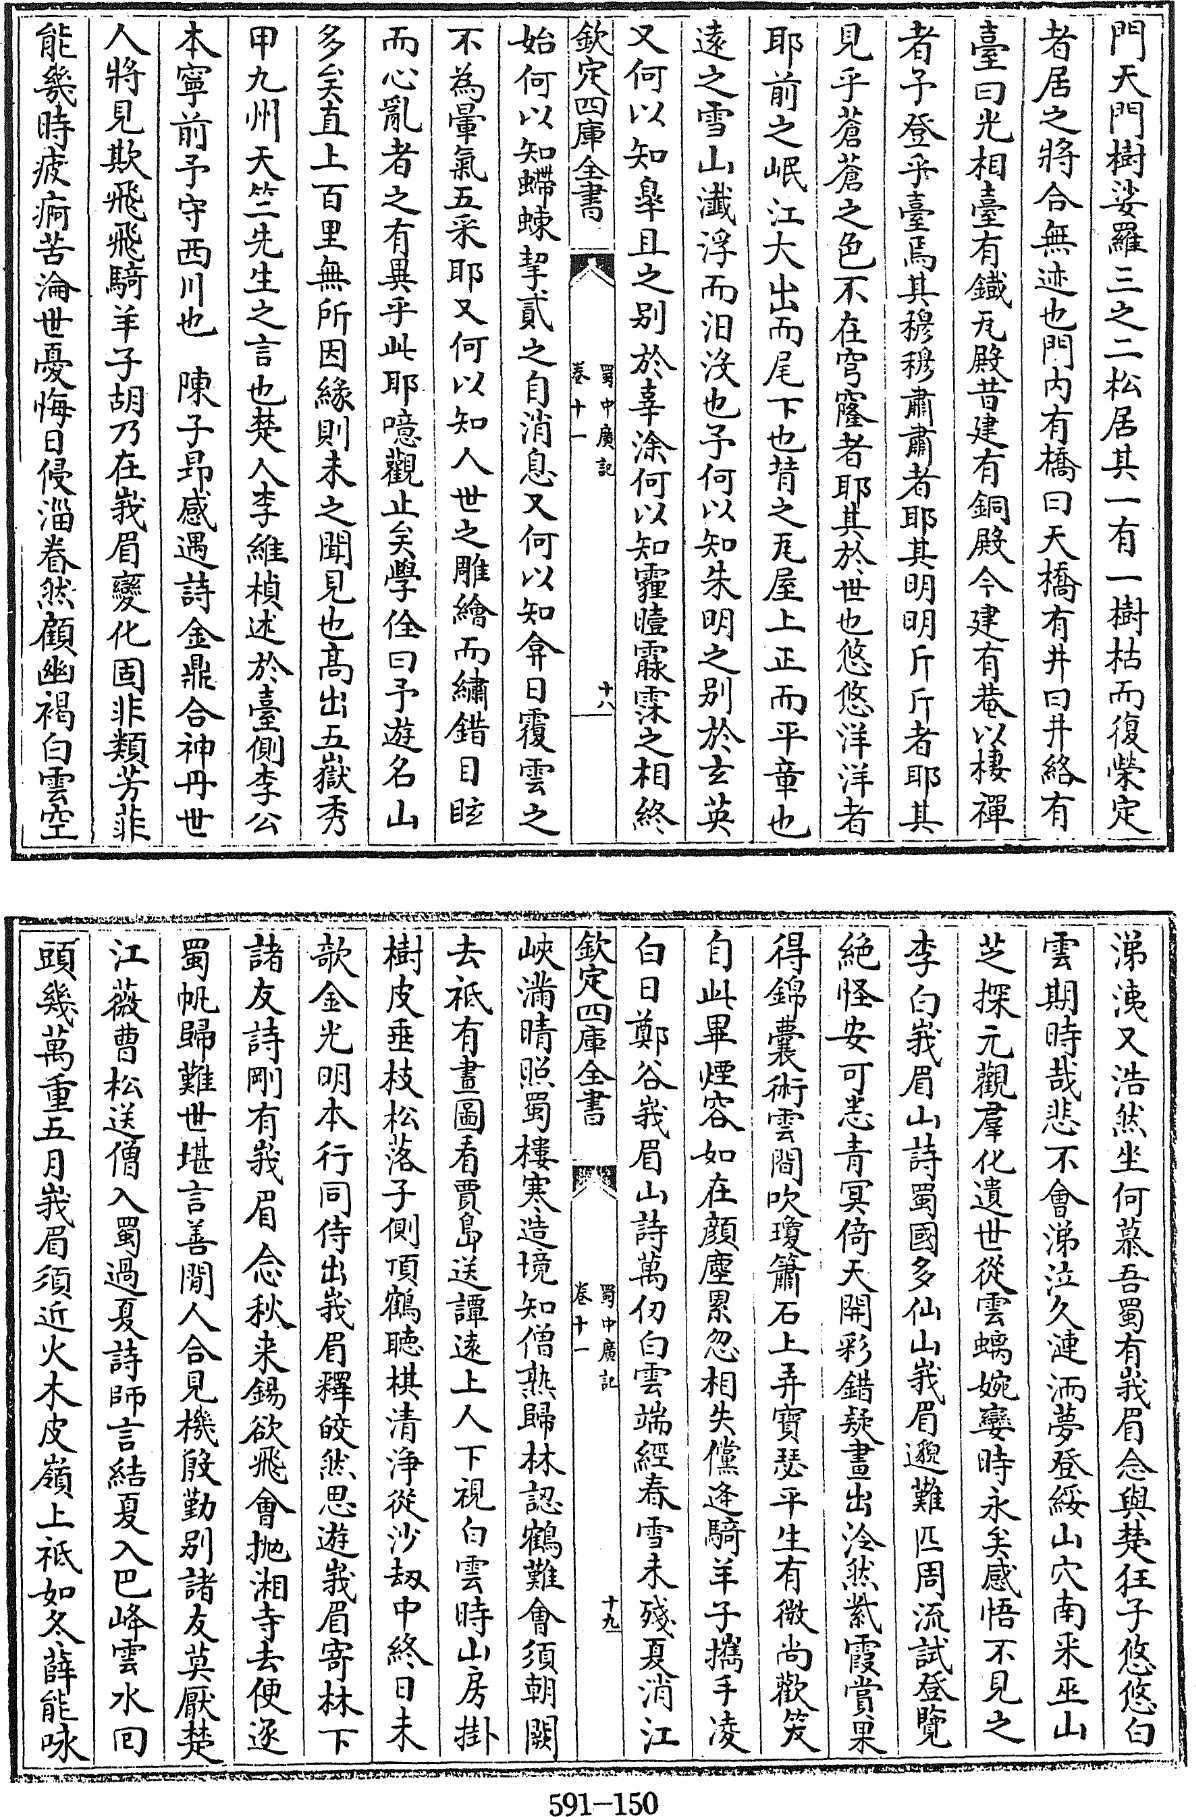 門天門樹娑羅三之二松居其一有一樹枯而復榮定
者居之將合無迹也門内有橋曰天橋有井曰井絡有
臺曰光相臺有鐵瓦殿昔建有銅殿今建有菴以棲禪
者子登乎臺焉其穆穆肅肅者耶其明明斤斤者耶其
見乎蒼蒼之色不在穹窿者耶其於世也悠悠洋洋者
耶前之岷江大出而尾下也昔之瓦屋上正而平章也
遠之雪山瀸浮而汩沒也予何以知朱明之别於玄英
又何以知皐且之别於辜涂何以知霾曀霡霂之相終
欽定四庫全書
蜀中廣記
卷十一
十八
始何以知螮蝀挈貳之自消息又何以知弇日覆雲之
不為暈氣五采耶又何以知人世之雕繪而繡錯目眩
而心亂者之有異乎此耶噫觀止矣學佺曰予遊名山
多矣直上百里無所因緣則未之聞見也高出五嶽秀
甲九州天竺先生之言也楚人李維楨述於臺側李公
本寧前予守西川也　陳子昂感遇詩金鼎合神丹世
人將見欺飛飛騎羊子胡乃在峩眉變化固非類芳菲
能幾時疲痾苦淪世憂悔日侵淄眷然顧幽褐白雲空
涕洟又浩然坐何慕吾蜀有峩眉念與楚狂子悠悠白
雲期時哉悲不會涕泣久漣洏夢登綏山穴南采巫山
芝探元觀羣化遺世從雲螭婉孌時永矣感悟不見之
李白峩眉山詩蜀國多仙山峩眉邈難匹周流試登覽
絶怪安可悉青冥倚天開彩錯疑畫出泠然紫霞賞果
得錦囊術雲間吹瓊簫石上弄寶瑟平生有微尚歡笑
自此畢煙容如在顔塵累忽相失儻逢騎羊子攜手凌
白日鄭谷峩眉山詩萬仞白雲端經春雪未殘夏消江
欽定四庫全書
蜀中廣記
卷十一
十九
峽滿晴照蜀樓寒造境知僧熟歸林認鶴難會須朝闕
去祗有畫圖看賈島送譚遠上人下視白雲時山房掛
樹皮垂枝松落子側頂鶴聴棋清浄從沙刼中終日未
欹金光明本行同侍出峩眉釋皎然思遊峩眉寄林下
諸友詩剛有峩眉念秋来錫欲飛會抛湘寺去便逐
蜀帆歸難世堪言善閒人合見機殷勤别諸友莫厭楚
江薇曹松送僧入蜀過夏詩師言結夏入巴峰雲水回
頭幾萬重五月峩眉須近火木皮嶺上祗如冬薛能咏
591-150